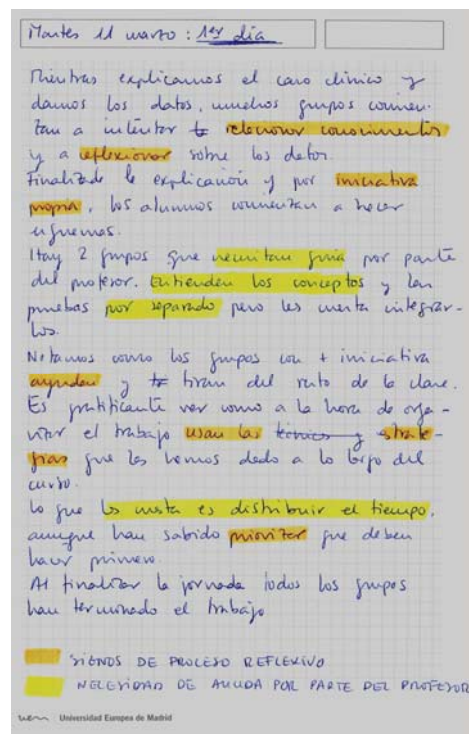 Martes 11 marzo : 1er día
Mientras explicamos el caso clínico y
damos los datos, muchos grupos comien-
zan a intentar relacionar conocimientos
y a reflexionar sobre los datos.
Finalizada la explicación y por iniciativa
propia, los alumnos comienzan a hacer
esquemas.
Hay 2 grupos que necesitan guía por parte
del profesor. Entienden los conceptos y las
pruebas por separado pero les cuesta integrar-
los.
Notamos como los grupos con + iniciativa
ayudan y tiran del resto de la clase.
Es gratificante ver como a la hora de orga-
nizar el trabajo usan las técnicas y estrate-
gias que les hemos dado a lo largo del
curso.
Lo que les cuesta es distribuir el tiempo,
aunque han sabido priorizar que deben
hacer primero.
Al finalizar la jornada todos los grupos
han terminado el trabajo
SIGNOS DE PROCESO REFLEXIVO
NECESIDAD DE AYUDA POR PARTE DEL PROFESOR
uem Universidad Europea de Madrid